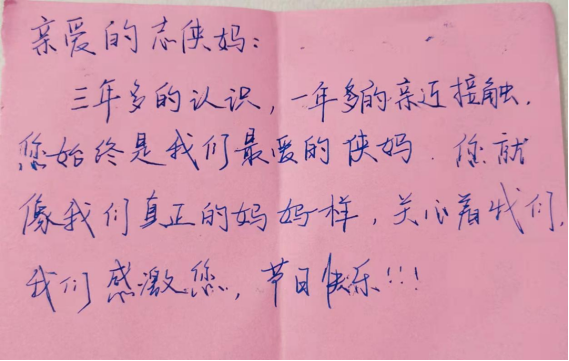 亲爱的志侠妈：
三年多的认识，一年多的亲近接触.
您始终是我们最爱的侠妈. 您就
像我们真正的妈妈样，关心着我们，
我们感激您，节日快乐!!!